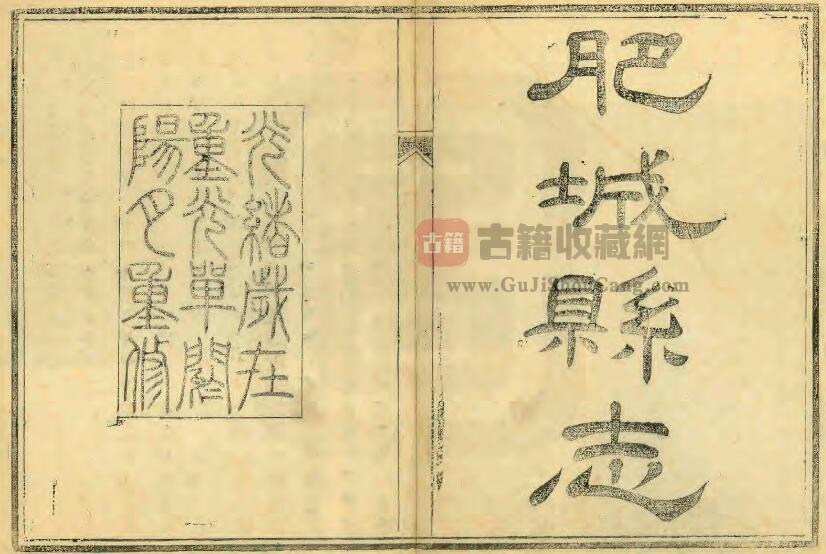 肥城縣志
光緒歲在
重光單閼
陽月重修
古籍
古籍收藏網
www.GuJiShouCang.com